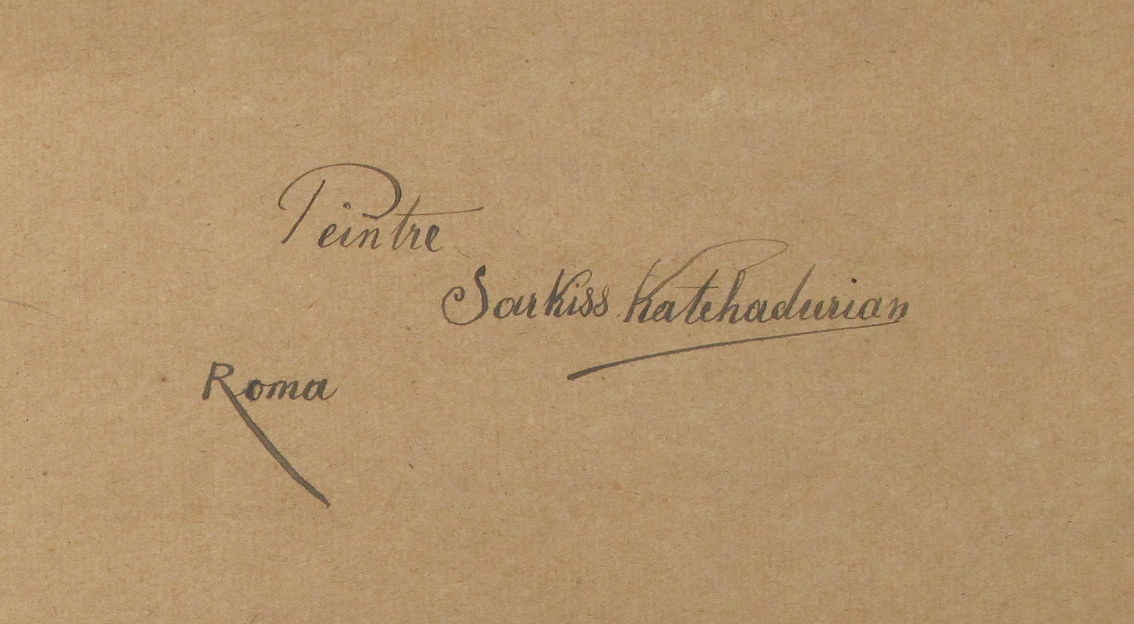 Peintre
Sarkiss Katchadurian
Roma